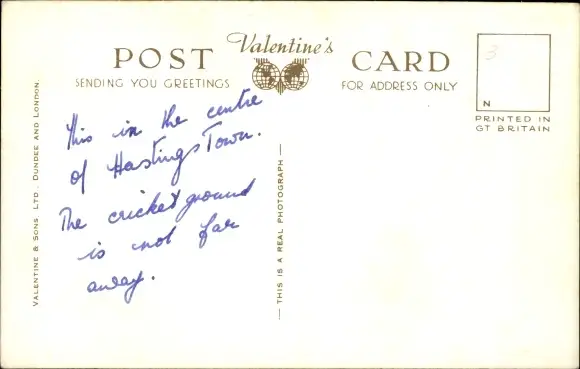 POST Valentine's CARD
SENDING YOU GREETINGS
FOR ADDRESS ONLY
3
N
PRINTED IN
GT BRITAIN
This in the centre
of Hastings Town.
The cricket ground
is not far
away.
VALENTINE & SONS, LTD., DUNDEE AND LONDON.
— THIS IS A REAL PHOTOGRAPH —